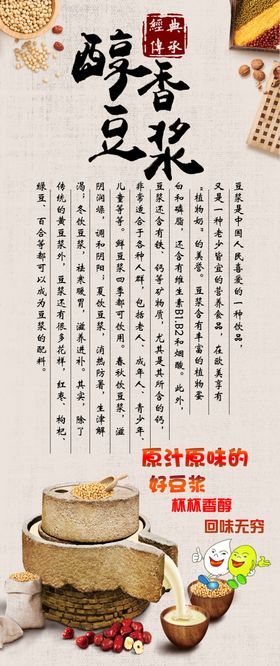 經典
傳承
醇香
豆浆
豆浆是中国人民喜爱的一种饮品，
又是一种老少皆宜的营养食品，在欧美享有
“植物奶”的美誉。豆浆含有丰富的植物蛋
白和磷脂，还含有维生素B1.B2和烟酸。此外，
豆浆还含有铁、钙等矿物质，尤其是其所含的钙，
非常适合于各种人群，包括老人、成年人、青少年、
儿童等等。鲜豆浆四季都可饮用。春秋饮豆浆，滋
阴润燥，调和阴阳；夏饮豆浆，消热防暑，生津解
渴；冬饮豆浆，祛寒暖胃，滋养进补。其实，除了
传统的黄豆浆外，豆浆还有很多花样，红枣、枸杞、
绿豆、百合等都可以成为豆浆的配料。
原汁原味的
好豆浆
杯杯香醇
回味无穷